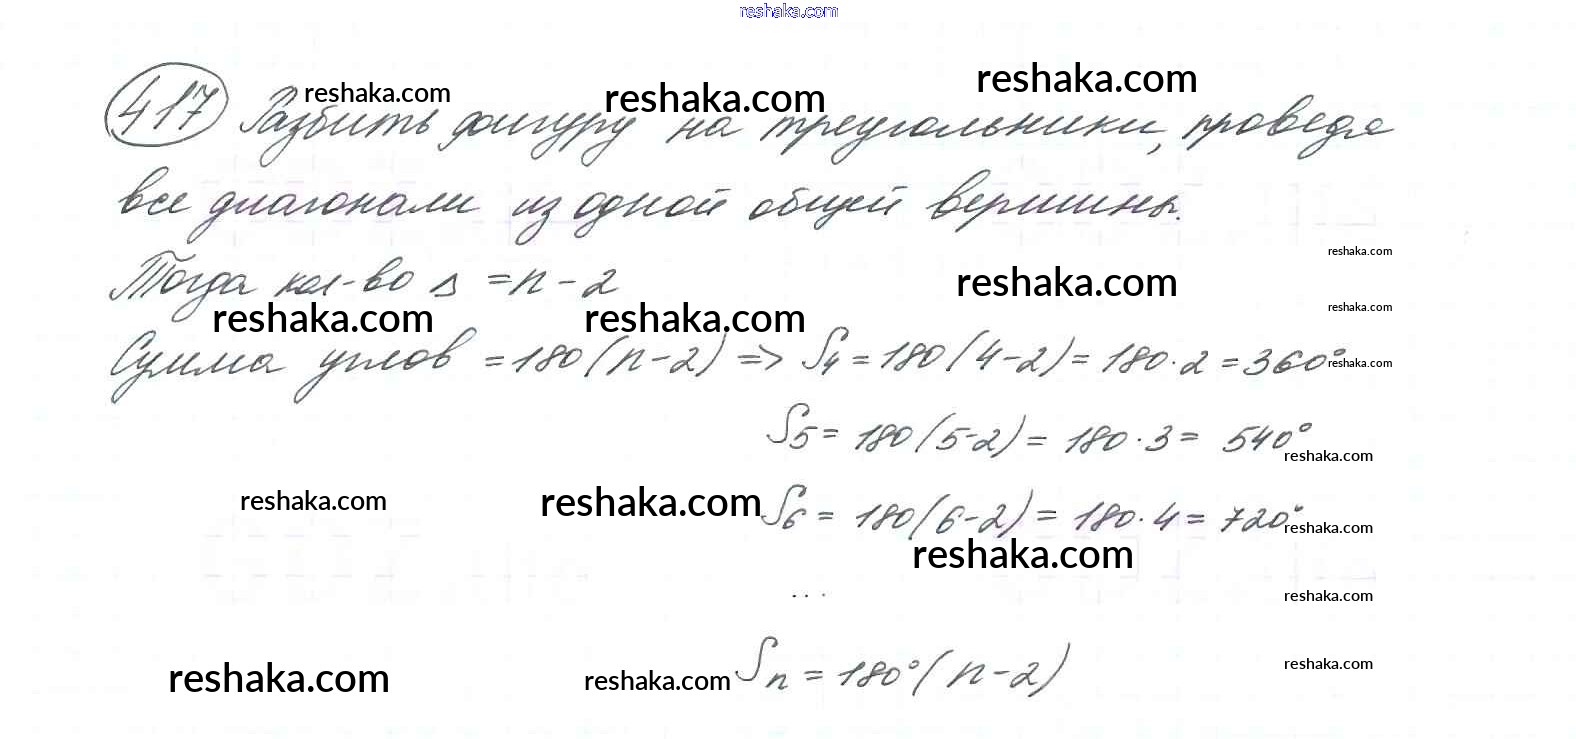 reshaka.com
reshaka.com reshaka.com reshaka.com
417 Разбить фигуру на треугольники, проведя
все диагонали из одной общей вершины.
reshaka.com
Тогда кол-во Δ = n - 2
reshaka.com
reshaka.com
reshaka.com reshaka.com
Сумма углов = 180 (n - 2) => S4 = 180 (4 - 2) = 180 · 2 = 360°
reshaka.com
S5 = 180 (5 - 2) = 180 · 3 = 540°
reshaka.com
reshaka.com reshaka.com
S6 = 180 (6 - 2) = 180 · 4 = 720°
reshaka.com
reshaka.com
...
reshaka.com
Sn = 180° (n - 2)
reshaka.com
reshaka.com reshaka.com